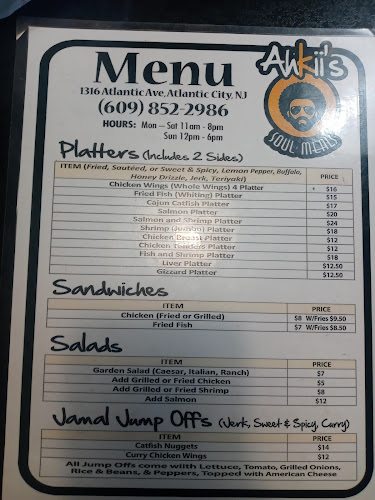 Menu
Ahkii's
SOUL MEALS
1316 Atlantic Ave, Atlantic City, NJ
(609) 852-2986
HOURS: Mon – Sat 11am - 8pm
Sun 12pm - 6pm
Platters (Includes 2 Sides)
ITEM (Fried, Sautéed, or Sweet & Spicy, Lemon Pepper, Buffalo, Honey Drizzle, Jerk, Teriyaki) PRICE
Chicken Wings (Whole Wings) 4 Platter $16
Fried Fish (Whiting) Platter $15
Cajun Catfish Platter $17
Salmon Platter $20
Salmon and Shrimp Platter $24
Shrimp (Jumbo) Platter $18
Chicken Breast Platter $12
Chicken Tenders Platter $12
Fish and Shrimp Platter $18
Liver Platter $12.50
Gizzard Platter $12.50
Sandwiches
ITEM PRICE
Chicken (Fried or Grilled) $8 W/Fries $9.50
Fried Fish $7 W/Fries $8.50
Salads
ITEM PRICE
Garden Salad (Caesar, Italian, Ranch) $7
Add Grilled or Fried Chicken $5
Add Grilled or Fried Shrimp $8
Add Salmon $12
Jamal Jump Offs (Jerk, Sweet & Spicy, Curry)
ITEM PRICE
Catfish Nuggets $14
Curry Chicken Wings $12
All Jump Offs come with Lettuce, Tomato, Grilled Onions,
Rice & Beans, & Peppers, Topped with American Cheese